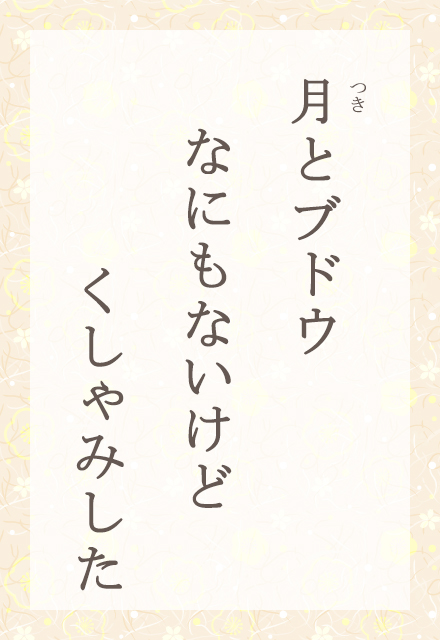 月とブドウ
つき
なにもないけど
くしゃみした